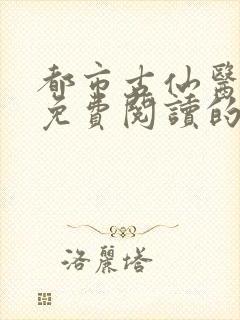 都市古仙醫
免費閱讀的
洛麗塔